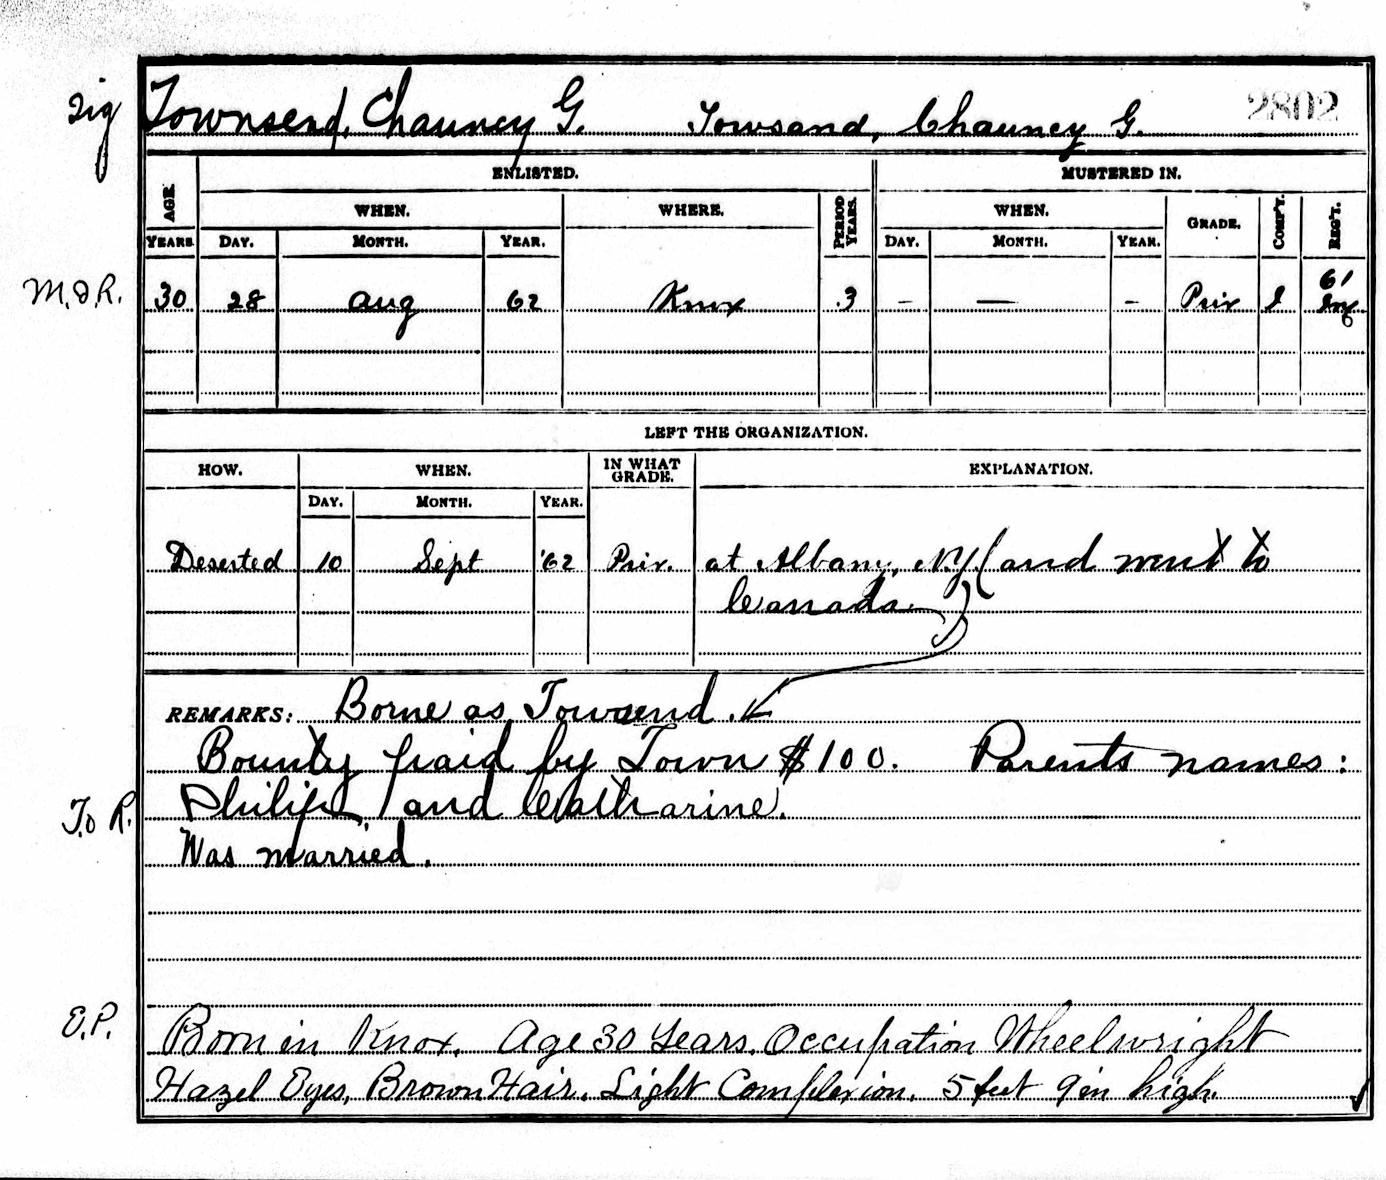 Sig Townsend, Chauncy G. Towsand, Chauncy G. 2802
ENLISTED. MUSTERED IN.
AGE. WHEN. WHERE. PERIOD YEARS. WHEN. GRADE. COMP'Y. REG'T.
YEARS. DAY. MONTH. YEAR. DAY. MONTH. YEAR.
M.D.R. 30 28 Aug 62 Knox 3 – — – Priv I 61 Inf
LEFT THE ORGANIZATION.
HOW. WHEN. IN WHAT GRADE. EXPLANATION.
DAY. MONTH. YEAR.
Deserted 10 Sept '62 Priv. at Albany, N.Y. (and went to
Canada.)
REMARKS: Borne as Towsend.
Bounty paid by Town $100. Parents names:
T.o R. Philip and Catharine.
Was married.
E.P. Born in Knox. Age 30 Years. Occupation Wheelwright
Hazel Eyes, Brown Hair. Light Complexion. 5 feet 9 in high.